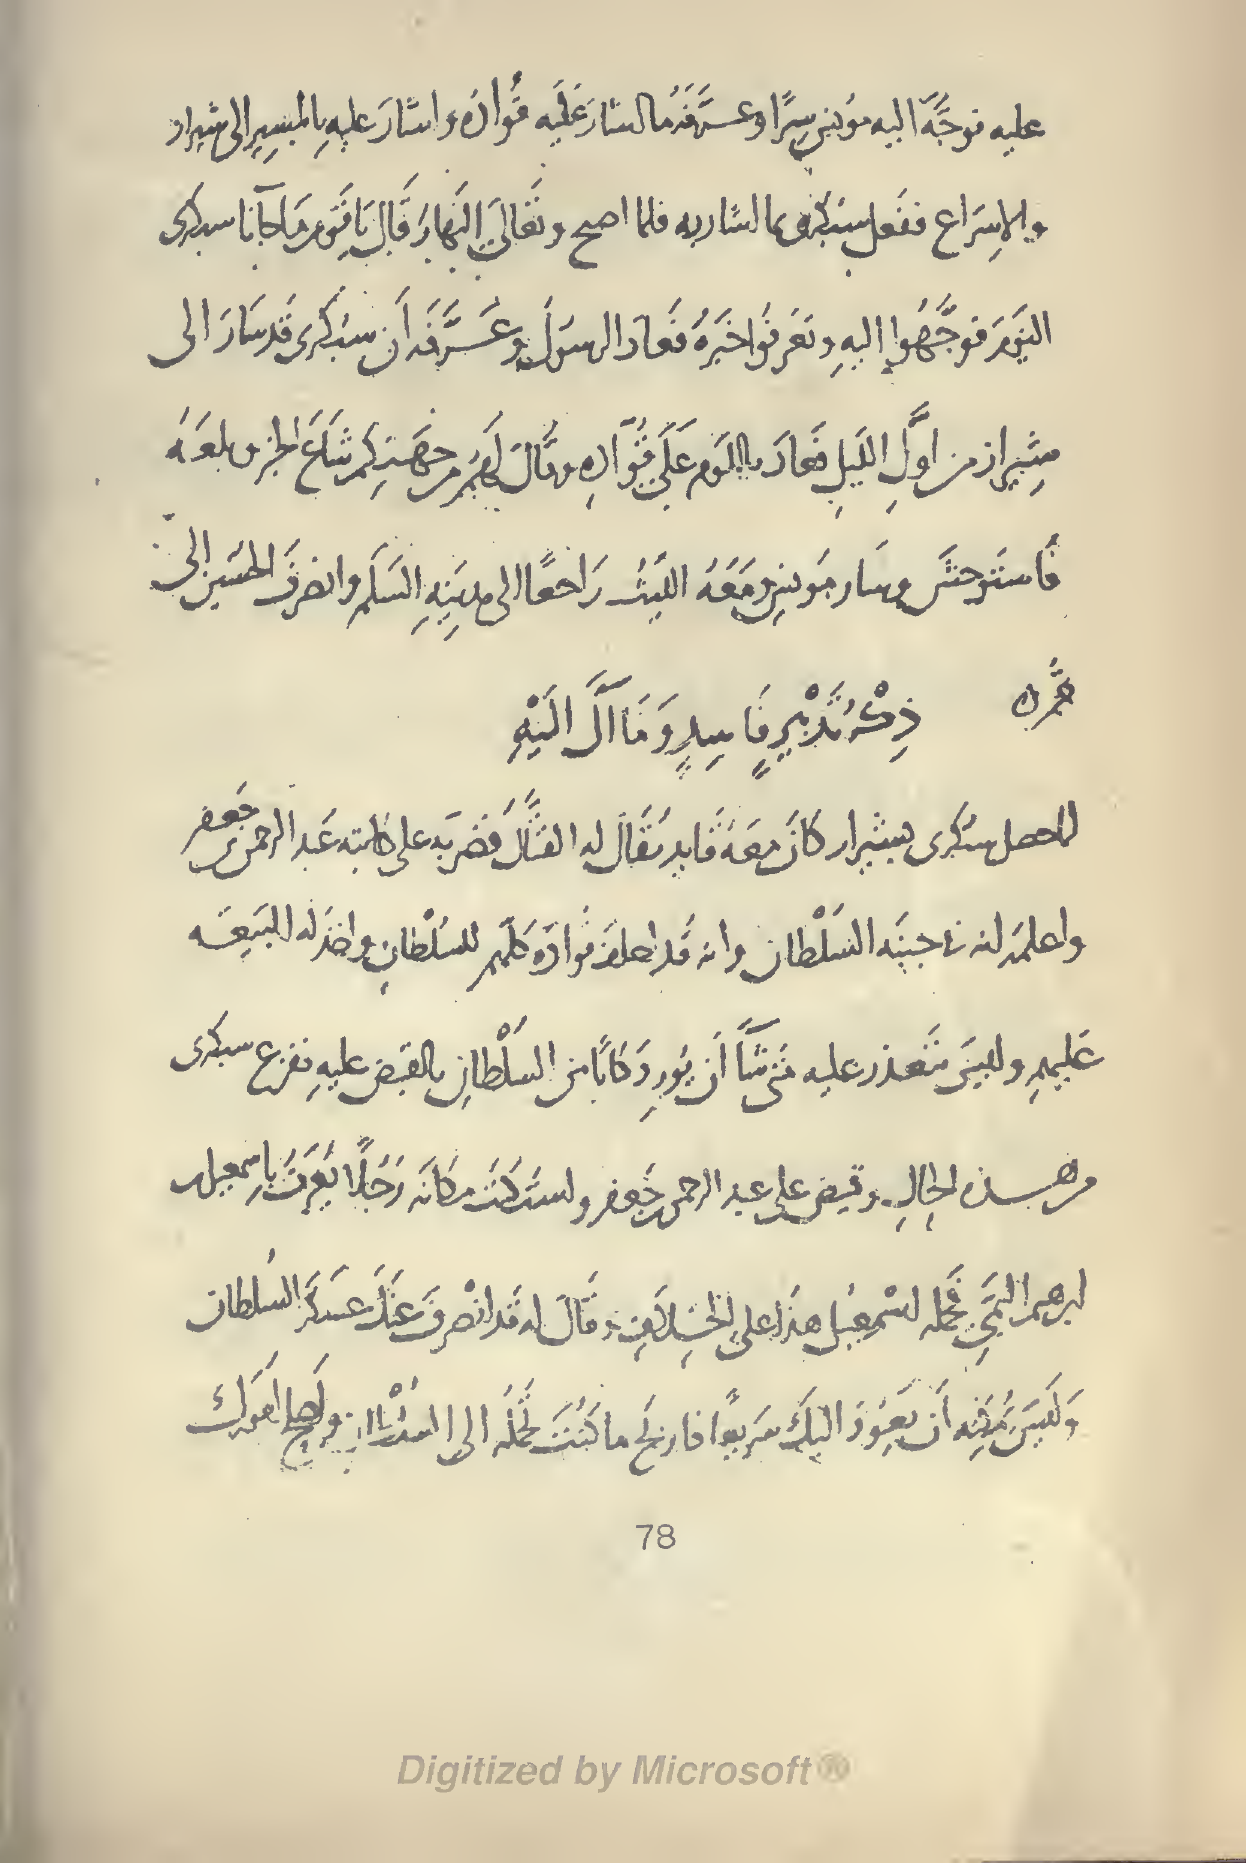 عليه فوجّه اليه مونس سِرًّا وعرَّفَهُ ما اشارَ عَلَيه قُوّادُه واشارَ عليهِ بِالمسِيرِ الى شيراز
والاسِرَاع ففَعل سبُكرى بما اشار به فلما اصبح وتَعَالىَ النَّهارَ قَالَ يَا قَوم مَا جآنا سبكرى
اليَومَ فوجِّهُوا اليهِ وتَعَرفُوا خبَرَهُ فَعادَ الرسُولُ وعَرَّفَهُ أن سبُكرى قَد سَارَ الى
شِيراز من اوَّلِ اللَيلِ فَعادَ باللوَم عَلَى قُوَّادِهِ وقَالَ لَهُم من جِهَتِكم شَاعَ الخبر وبلَغَهُ
فَاستَوحَشَ وسَار مُونس ومَعَهُ الليثُ رَاجعًا الى مدِينِهِ السَلَم وانصَرفَ الحُسَين الى
قُمّ ه
ذِكْرُ تَدْبيرٍ فَاسِدٍ وَمَا آلَ الَيْهِ
لما حصل سبُكرى بشِيراز كَانَ معَهُ قَايد يُقَالُ له القتَّالُ فضَربَه على كاتبه عَبد الرحمن بن جَعفر
واعلمَه انه فى جنبَه السَلْطان وانه قَد احلفَ قُوادَه كلّهم للسُلْطانِ واخذ له البَيعَه
عَليهم وليسَ يتَعذر عليه متى شَآَ أن يُورِدَ كتابًا من السُلْطانِ بالقبض عليهِ ففزع سبكرى
من هـذه الحالِ وقبض على عبد الرحمن بن جَعفر واستَكتَبَ مكانَه رَجُلًا يُعرفُ باِسمعيل بن
ابرهيم التيمَى فحَمله اسْمعِيل هذَا على الخِلافِ وقَالَ له قَد انْصرفَ عَنكَ عسَكرَ السُلطان
وَليَسَ يُمكِنه أن يَعوُدَ اليكَ سَريعًا فاربَح ما كُنتَ تحمُلَه الى السُلْطان واصلح امورك
78
Digitized by Microsoft®